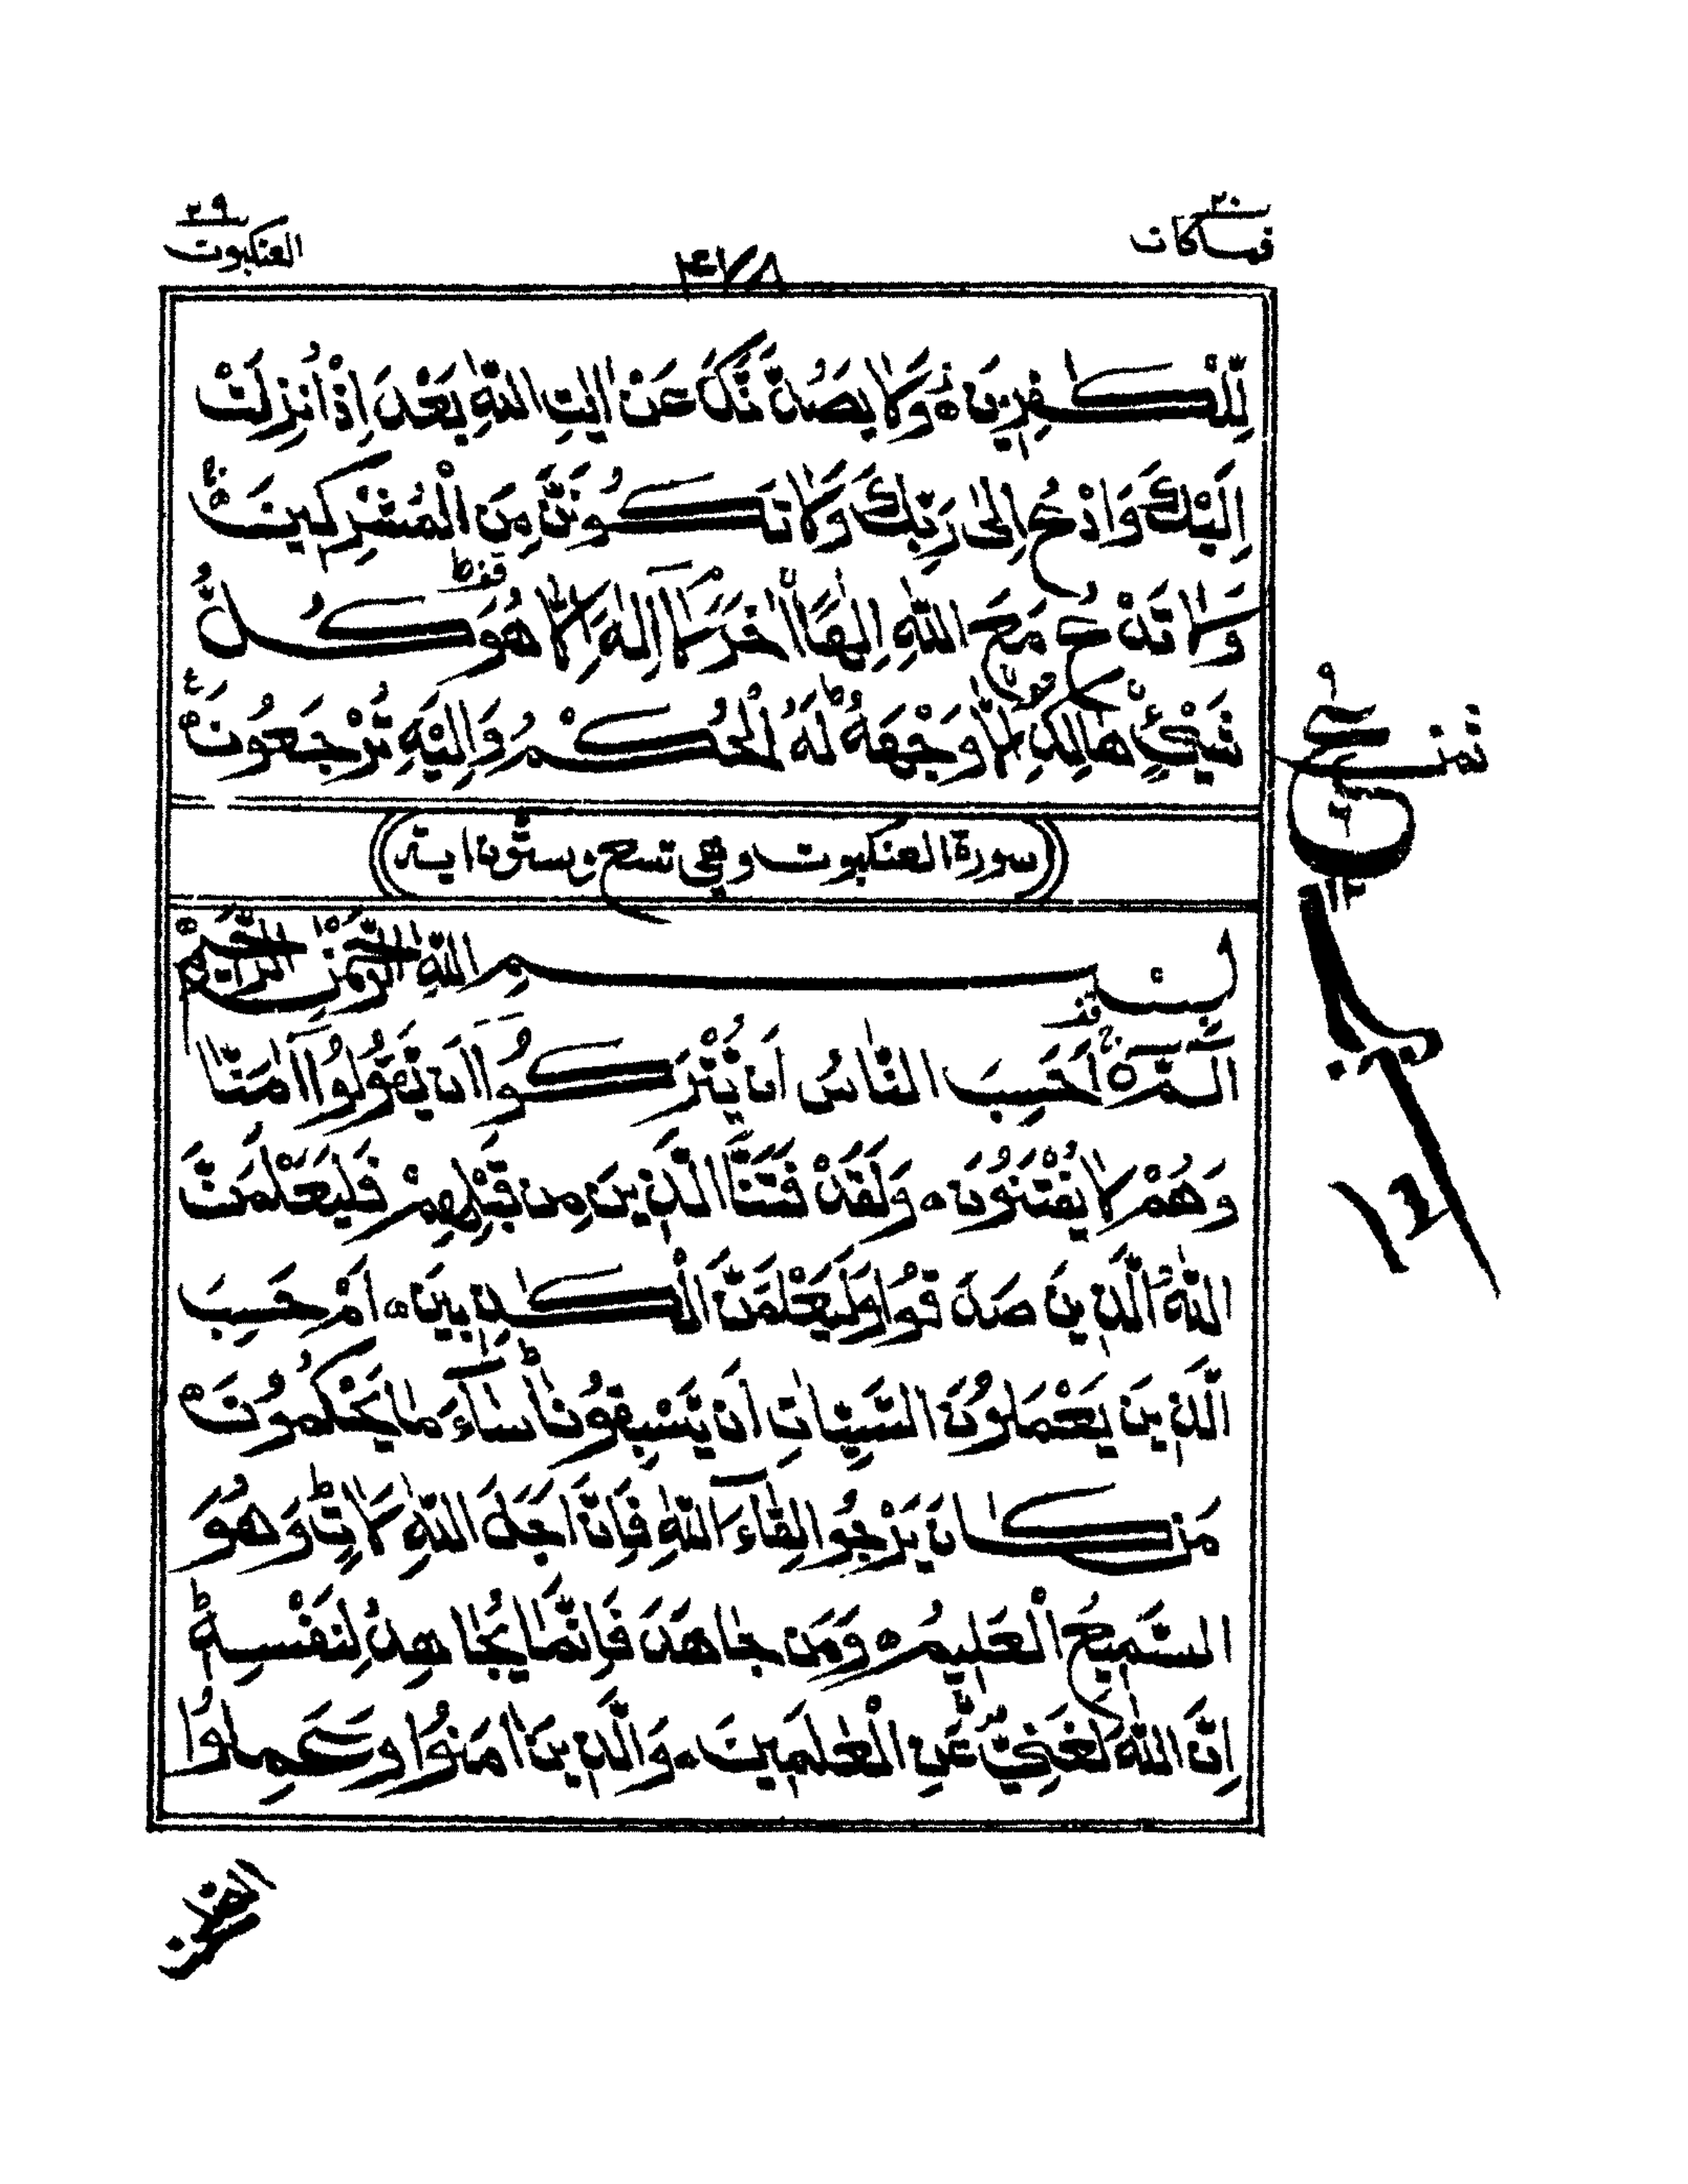 ٢٠ ٢٩
فماكان العنكبوت
٤٧٨
لِّلْكٰفِرِيْنَ ۝ وَلَا يَصُدُّنَّكَ عَنْ اٰيٰتِ اللّٰهِ بَعْدَ اِذْ اُنْزِلَتْ
اِلَيْكَ وَادْعُ اِلٰى رَبِّكَ وَلَا تَكُوْنَنَّ مِنَ الْمُشْرِكِيْنَ ۝
وَلَا تَدْعُ مَعَ اللّٰهِ اِلٰهًا اٰخَرَ لَآ اِلٰهَ اِلَّا هُوَ كُلُّ
شَيْئٍ هَالِكٌ اِلَّا وَجْهَهٗ ط لَهُ الْحُكْمُ وَاِلَيْهِ تُرْجَعُوْنَ ۝
سورة العنكبوت وهي تسع وستون اية
بِسْمِ اللّٰهِ الرَّحْمٰنِ الرَّحِيْمِ
الٓمّٓ ۝ اَحَسِبَ النَّاسُ اَنْ يُّتْرَكُوْٓا اَنْ يَّقُوْلُوْٓا اٰمَنَّا
وَهُمْ لَا يُفْتَنُوْنَ ۝ وَلَقَدْ فَتَنَّا الَّذِيْنَ مِنْ قَبْلِهِمْ فَلَيَعْلَمَنَّ
اللّٰهُ الَّذِيْنَ صَدَقُوْا وَلَيَعْلَمَنَّ الْكٰذِبِيْنَ ۝ اَمْ حَسِبَ
الَّذِيْنَ يَعْمَلُوْنَ السَّيِّاٰتِ اَنْ يَّسْبِقُوْنَا ط سَآءَ مَا يَحْكُمُوْنَ ۝
مَنْ كَانَ يَرْجُوْا لِقَآءَ اللّٰهِ فَاِنَّ اَجَلَ اللّٰهِ لَاٰتٍ ط وَهُوَ
السَّمِيْعُ الْعَلِيْمُ ۝ وَمَنْ جَاهَدَ فَاِنَّمَا يُجَاهِدُ لِنَفْسِهٖ ط
اِنَّ اللّٰهَ لَغَنِيٌّ عَنِ الْعٰلَمِيْنَ ۝ وَالَّذِيْنَ اٰمَنُوْا وَعَمِلُوا